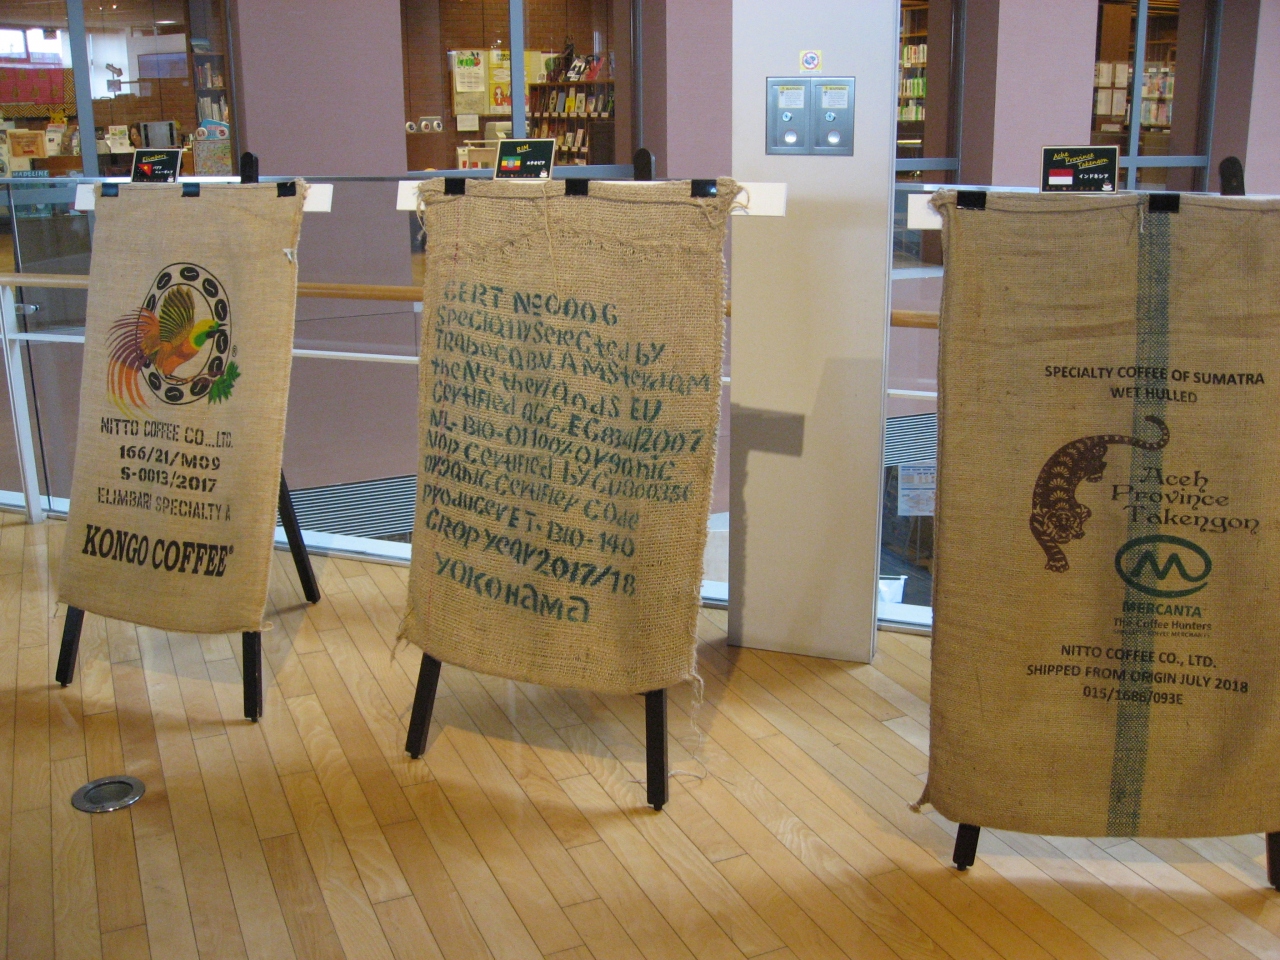 Elimbari
パプア
ニューギニア
NITTO COFFEE CO.,LTD.
166/21/M09
S-0013/2017
ELIMBARI SPECIALTY A
KONGO COFFEE®
MADELINE
エチオピア
CERT №0006
Specially Selected by
TRABOCA BV. AMSterdAM
the Netherlands EU
Certified acc. EC.834/2007
NL-BIO-01 100% Organic
NOP Certified by CU800356
Organic Certifier Code
Producer ET-BIO-140
Crop year 2017/18
YOKOHAMA
Aceh
Province
Takengon
インドネシア
SPECIALTY COFFEE OF SUMATRA
WET HULLED
Aceh
Province
Takengon
MERCANTA
The Coffee Hunters
NITTO COFFEE CO., LTD.
SHIPPED FROM ORIGIN JULY 2018
015/1686/093E